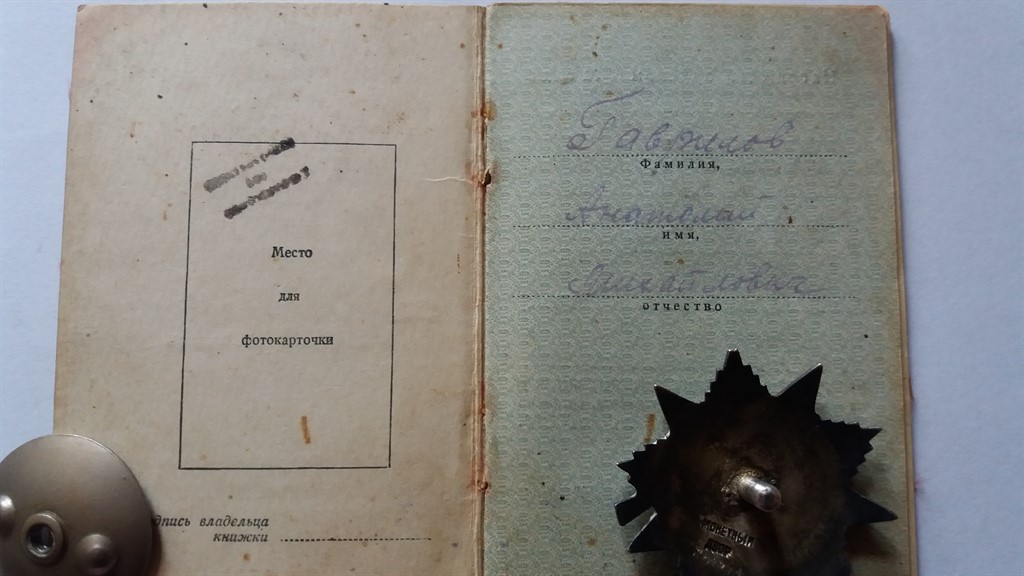 Место
для
фотокарточки
дпись владельца
книжки
Гаврилов
Фамилия,
Анатолий
имя,
Михайлович
отчество
МОНЕТНЫЙ
ДВОР